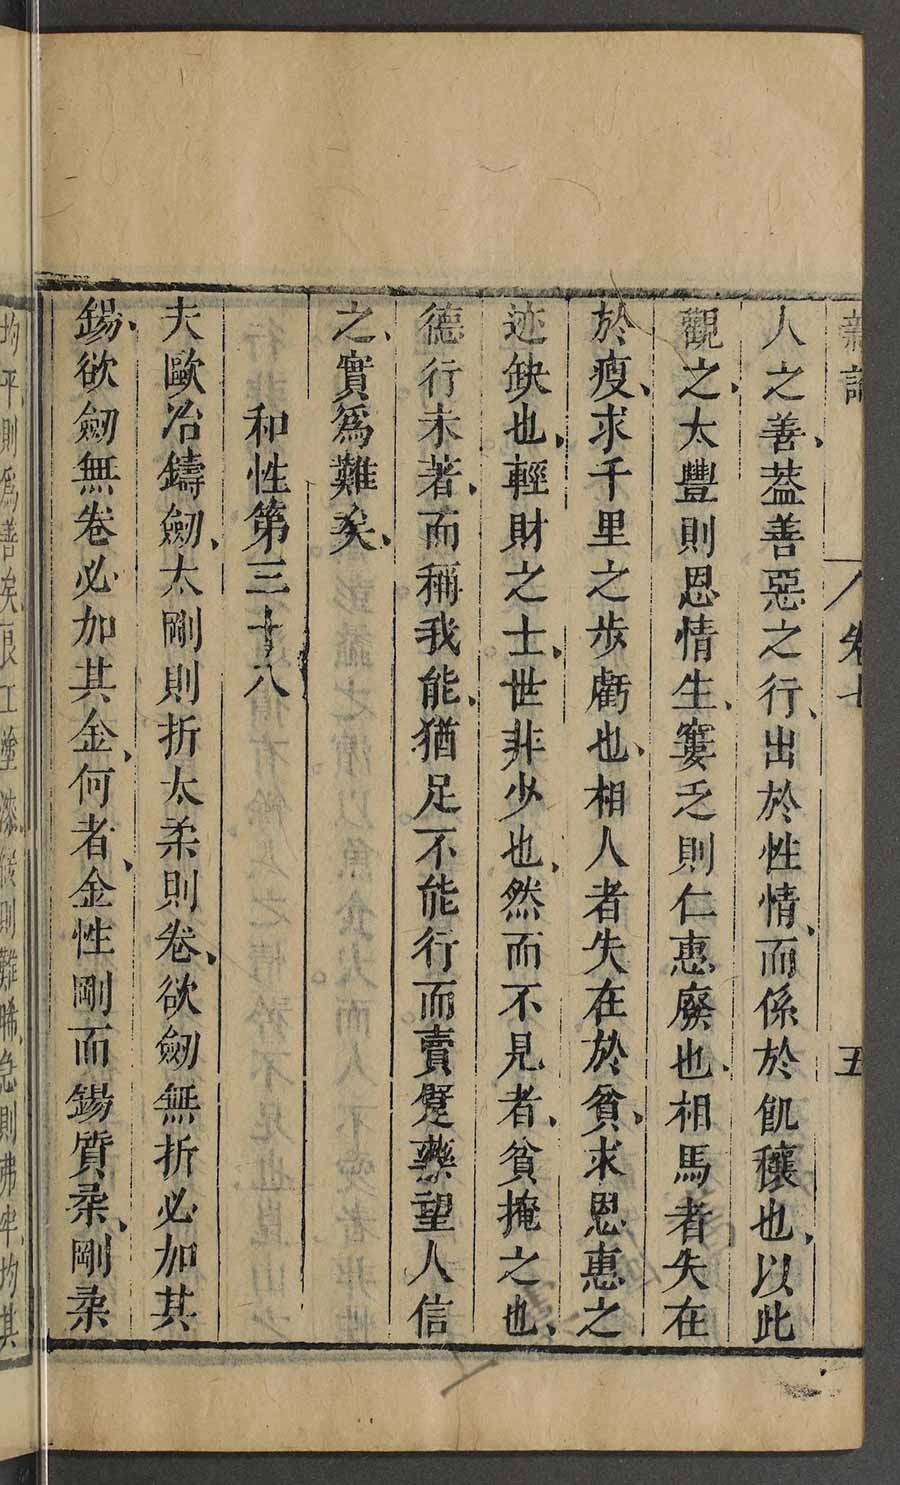 新論 卷七 五
人之善、葢善惡之行、出於性情、而係於飢穰也、以此
觀之、太豐則恩情生、窶乏則仁惠廢也、相馬者失在
於瘦、求千里之步虧也、相人者失在於貧、求恩惠之
迹缺也、輕財之士、世非少也、然而不見者、貧掩之也、
德行未著、而稱我能、猶足不能行而賣躄藥望人信
之、實爲難矣、
和性第三十八
夫歐冶鑄劒、太剛則折太柔則卷、欲劒無折必加其
錫、欲劒無卷必加其金、何者、金性剛而錫質柔、剛柔
均平、則爲善矣、良工塗漆、緩則難晞、急則弗牢、均其